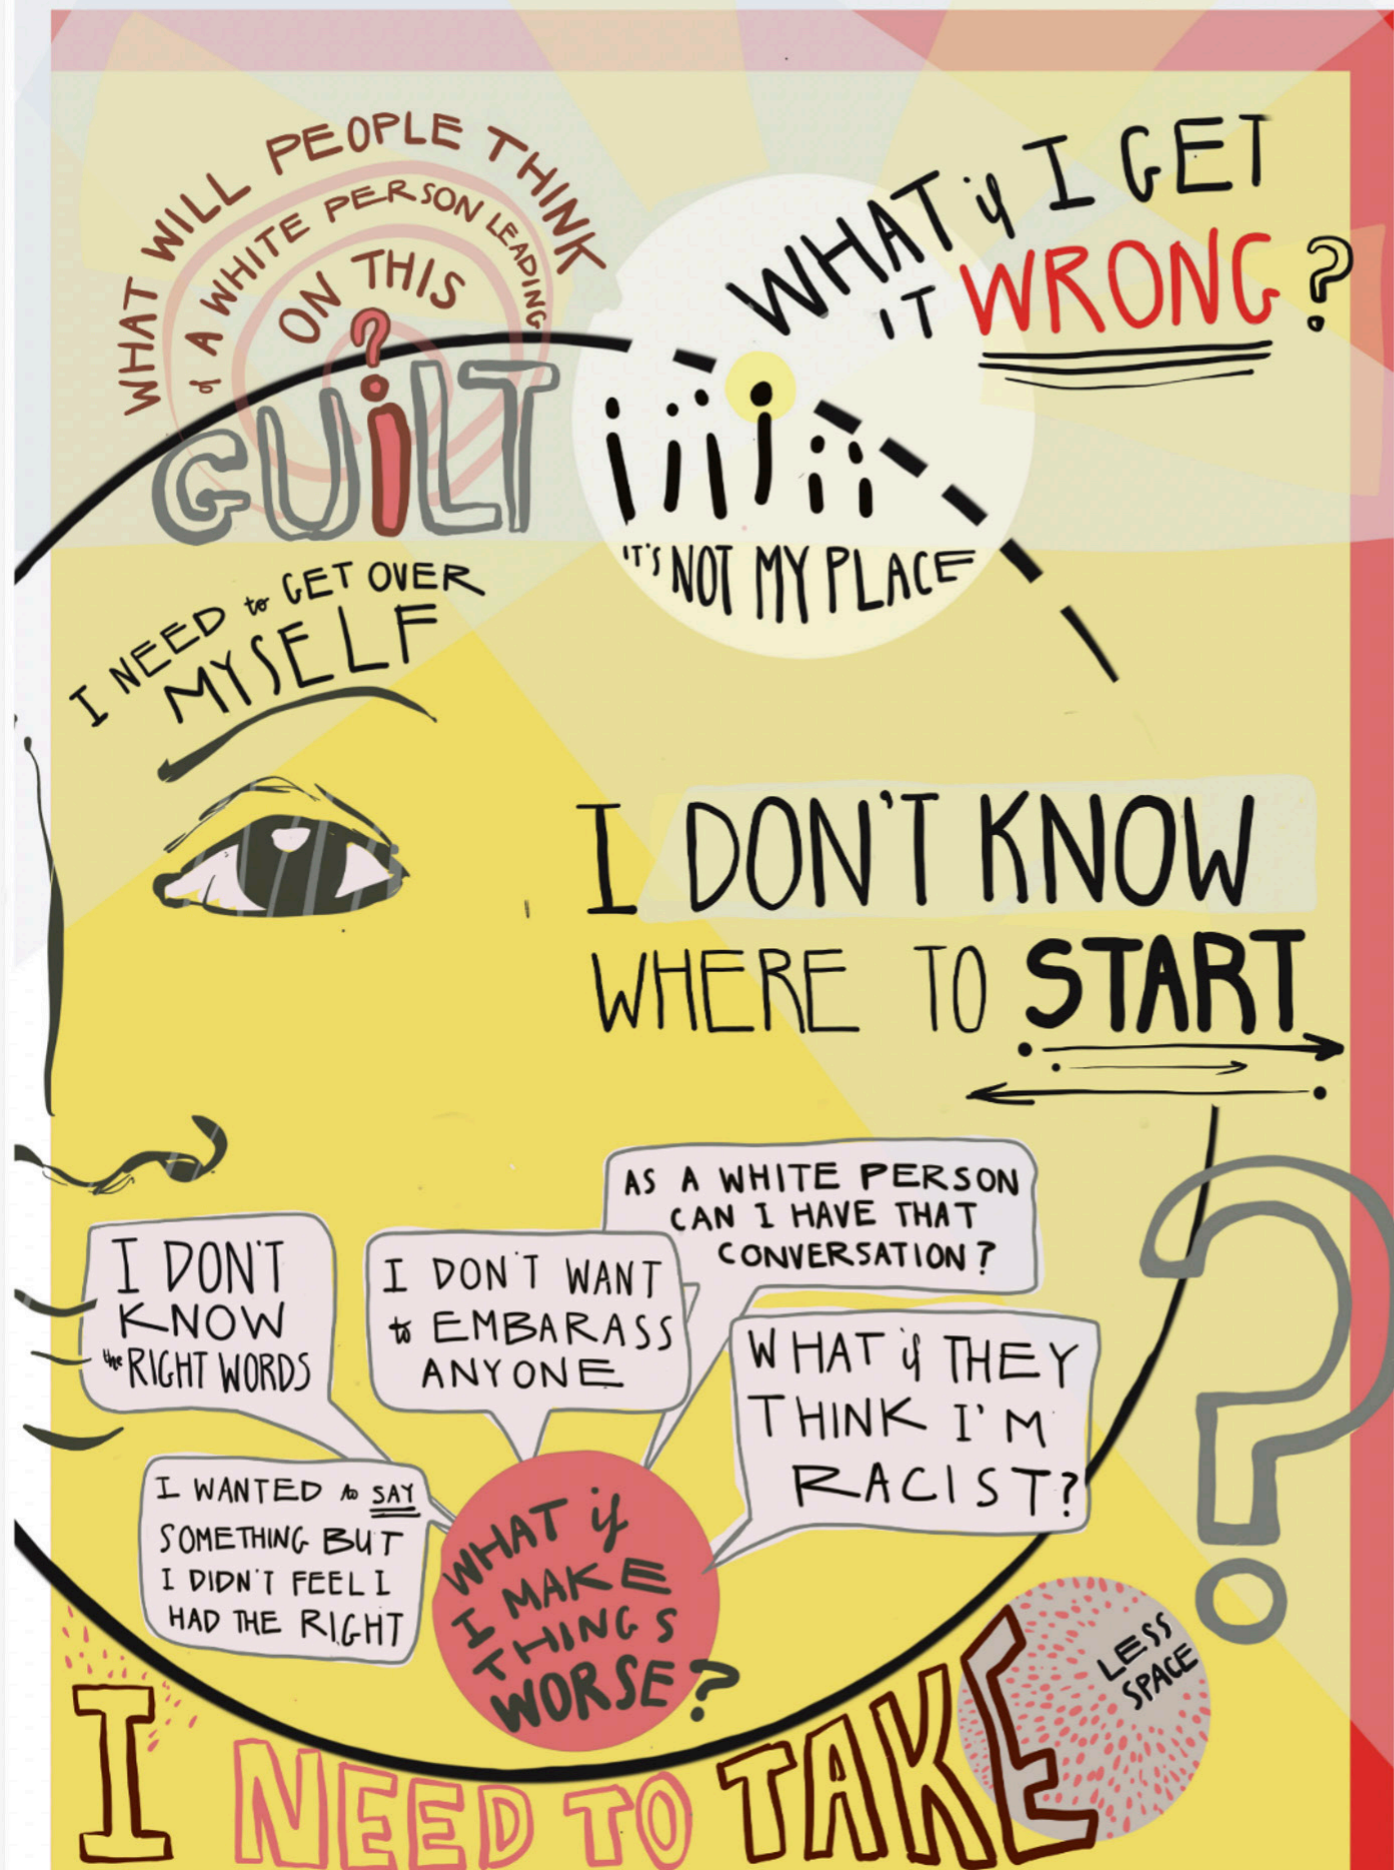 WHAT WILL PEOPLE THINK
of A WHITE PERSON LEADING
ON THIS
?
GUiLT
WHAT if I GET
IT WRONG?
IT'S NOT MY PLACE
I NEED to GET OVER
MYSELF
I DON'T KNOW
WHERE TO START
?
AS A WHITE PERSON
CAN I HAVE THAT
CONVERSATION?
I DON'T
KNOW
the RIGHT WORDS
I DON'T WANT
to EMBARASS
ANYONE
WHAT if THEY
THINK I'M
RACIST?
I WANTED to SAY
SOMETHING BUT
I DIDN'T FEEL I
HAD THE RIGHT
WHAT if
I MAKE
THINGS
WORSE?
I NEED TO TAKE
LESS
SPACE